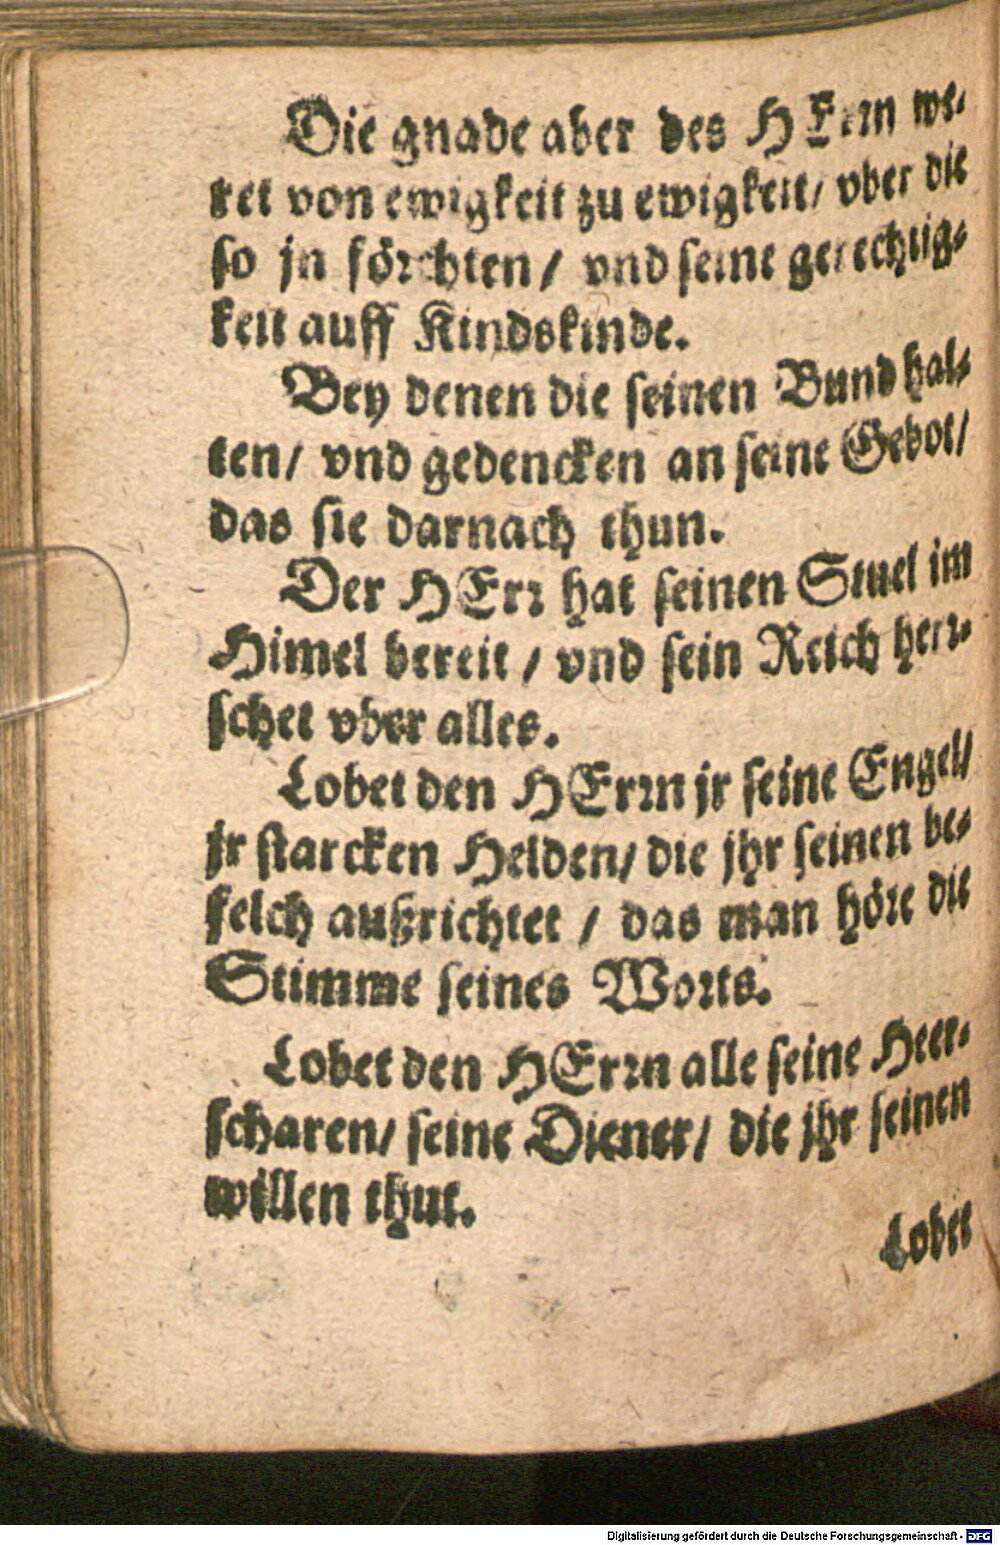 Die gnade aber des HErrn we-
ret von ewigkeit zu ewigkeit/ vber die
so jn förchten/ vnd seine gerechtig-
keit auff Kindskinde.
Bey denen die seinen Bund hal-
ten/ vnd gedencken an seine Gebot/
das sie darnach thun.
Der HErr hat seinen Stuel im
Himel bereit/ vnd sein Reich herr-
schet vber alles.
Lobet den HErrn jr seine Engel/
jr starcken Helden/ die jhr seinen be-
felch außrichtet/ das man höre die
Stimme seines Worts.
Lobet den HErrn alle seine Heer-
scharen/ seine Diener/ die jhr seinen
willen thut.
Lobet
Digitalisierung gefördert durch die Deutsche Forschungsgemeinschaft - DFG